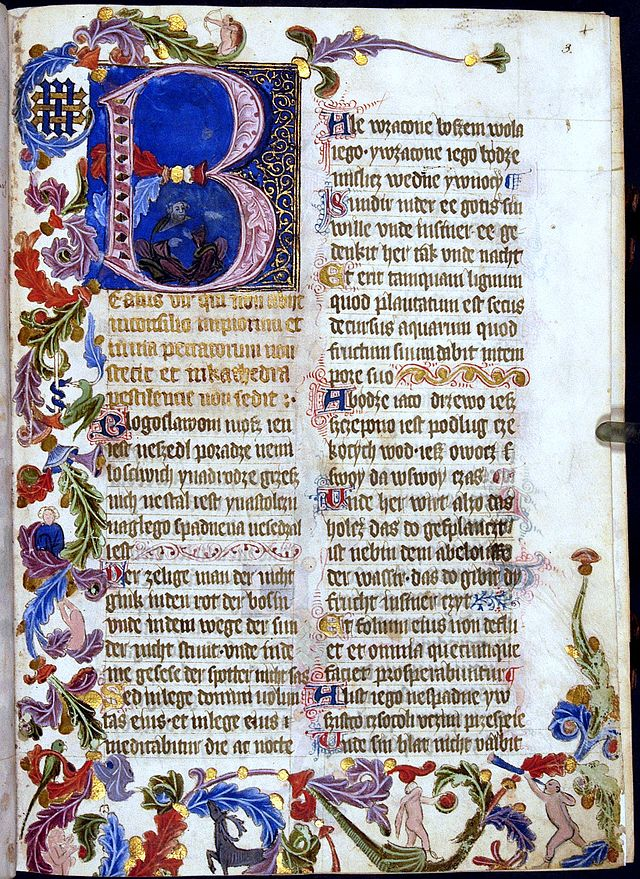 B
Eatus vir qui non abijt
in consilio impiorum et
in uia peccatorum non
stetit et in kathedra
pestilencie non sedit :
Blogoslawoni møsz ien
iest neszedl po radze nemi
losciwich y na drodze grzesz
nich ne stal iest y na stolczu
naglego spadnena ne sedzal
iest
Der zelige man der nicht
gink in den rot der bosin
vnde in dem wege der sun
der nicht stunt · vnde in de
me gesese der spotter nicht sas
Sed in lege domini volun
tas eius · et in lege eius
meditabitur die ac nocte
Ale wzacone boszem wola
iego · y wzacone iego bødze
mislicz we dne y w nocy
Sundir in der ee gotis sin
wille vnde in siner ee ge
denkit her tak vnde nacht
Et erit tamquam lignum
quod plantatum est secus
decursus aquarum quod
fructum suum dabit in tem
pore suo
A bødze iaco drzewo iesz
szczepono iest podlug cze
køcych wod · iesz owocz
swoy da w swoy czas
Vnde her wirt alzo das
holcz das do gepflanczit
ist nebin dem
der wassir · das do gibit dy
frucht in siner czyt
Et folium eius non deflu
et et omnia quecunque
faciet prosperabuntur
A list iego ne spadne y w
szistco czsocoli vczini przespeie
Vnde sin blat nicht valbit